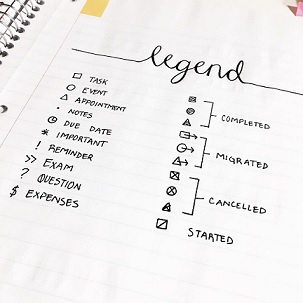 legend
TASK
EVENT
APPOINTMENT
NOTES
DUE DATE
* IMPORTANT
! REMINDER
>> EXAM
? QUESTION
$ EXPENSES
COMPLETED
MIGRATED
CANCELLED
STARTED